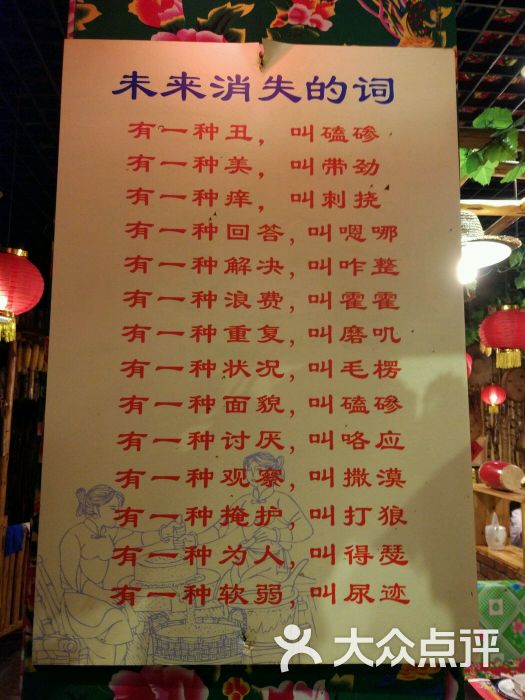 未来消失的词
有一种丑，叫磕碜
有一种美，叫带劲
有一种痒，叫刺挠
有一种回答，叫嗯哪
有一种解决，叫咋整
有一种浪费，叫霍霍
有一种重复，叫磨叽
有一种状况，叫毛楞
有一种面貌，叫磕碜
有一种讨厌，叫咯应
有一种观察，叫撒漠
有一种掩护，叫打狼
有一种为人，叫得瑟
有一种软弱，叫尿迹
大众点评